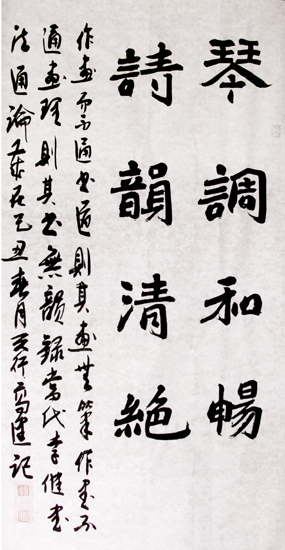 琴調和暢
詩韻清絕
作畫而不通書道則其畫無筆作書不
通畫理則其書無韻錄當代李健書
法通論歲在己丑春月
記